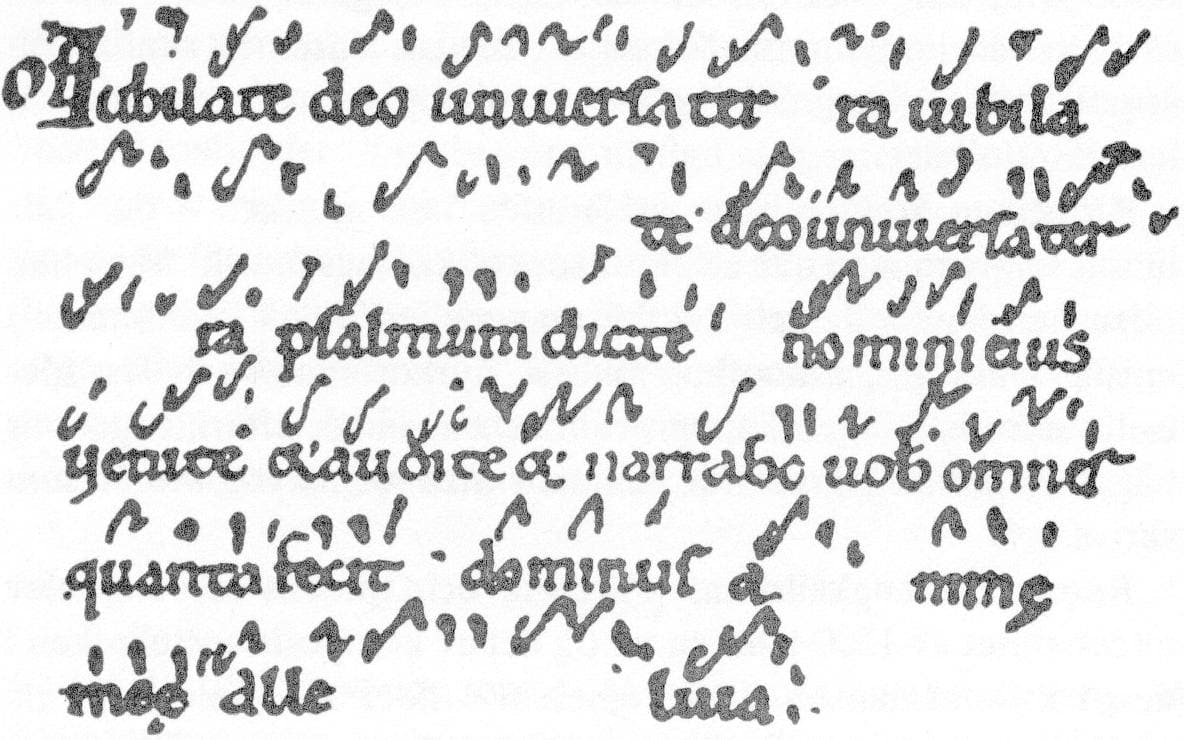 Of Iubilate deo uniuerſa ter ra iubila
te deo uniuerſa ter
ra pſalmum dicite nomini eius
uenite & audite & narrabo uob omnes
quanta fecit dominuſ a nimę
meę alle luia: